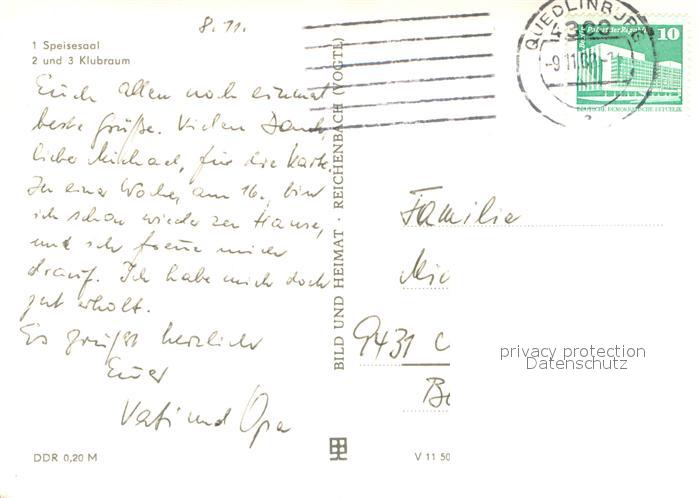 8.11.
1 Speisesaal
2 und 3 Klubraum
Euch allen noch einmal
beste Grüße. Vielen Dank,
lieber Michael, für die Karte.
In einer Woche, am 16., bin
ich schon wieder zu Hause,
und ich freue mich
drauf. Ich habe mich doch
gut erholt.
Es grüßt herzlich
Euer
Vati und Opa
DDR 0,20 M
BILD UND HEIMAT · REICHENBACH (VOGTL)
V 11 50
QUEDLINBURG
4300
-9.11.80
Palast der Republik
10
DEUTSCHE DEMOKRATISCHE REPUBLIK
Familie
Mic
9431 C
Be
privacy protection
Datenschutz